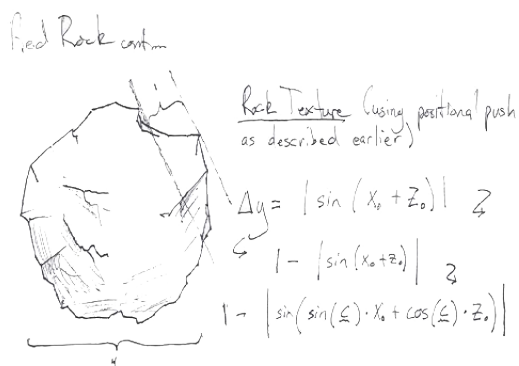 Rock cont...
Rock Texture (using positional push
as described earlier)
Δy = |sin(X₀ + Z₀)|
1 - |sin(x₀+z₀)|
1 - |sin(sin(c)·X₀ + cos(c)·Z₀)|